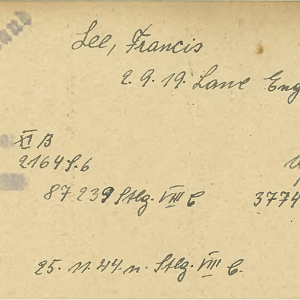 Lee, Francis
2.9.19. Lane Eng
XI B
21645.6
87239 Stlg. VIII C 3774
25.11.44. n. Stlg. VIII C.